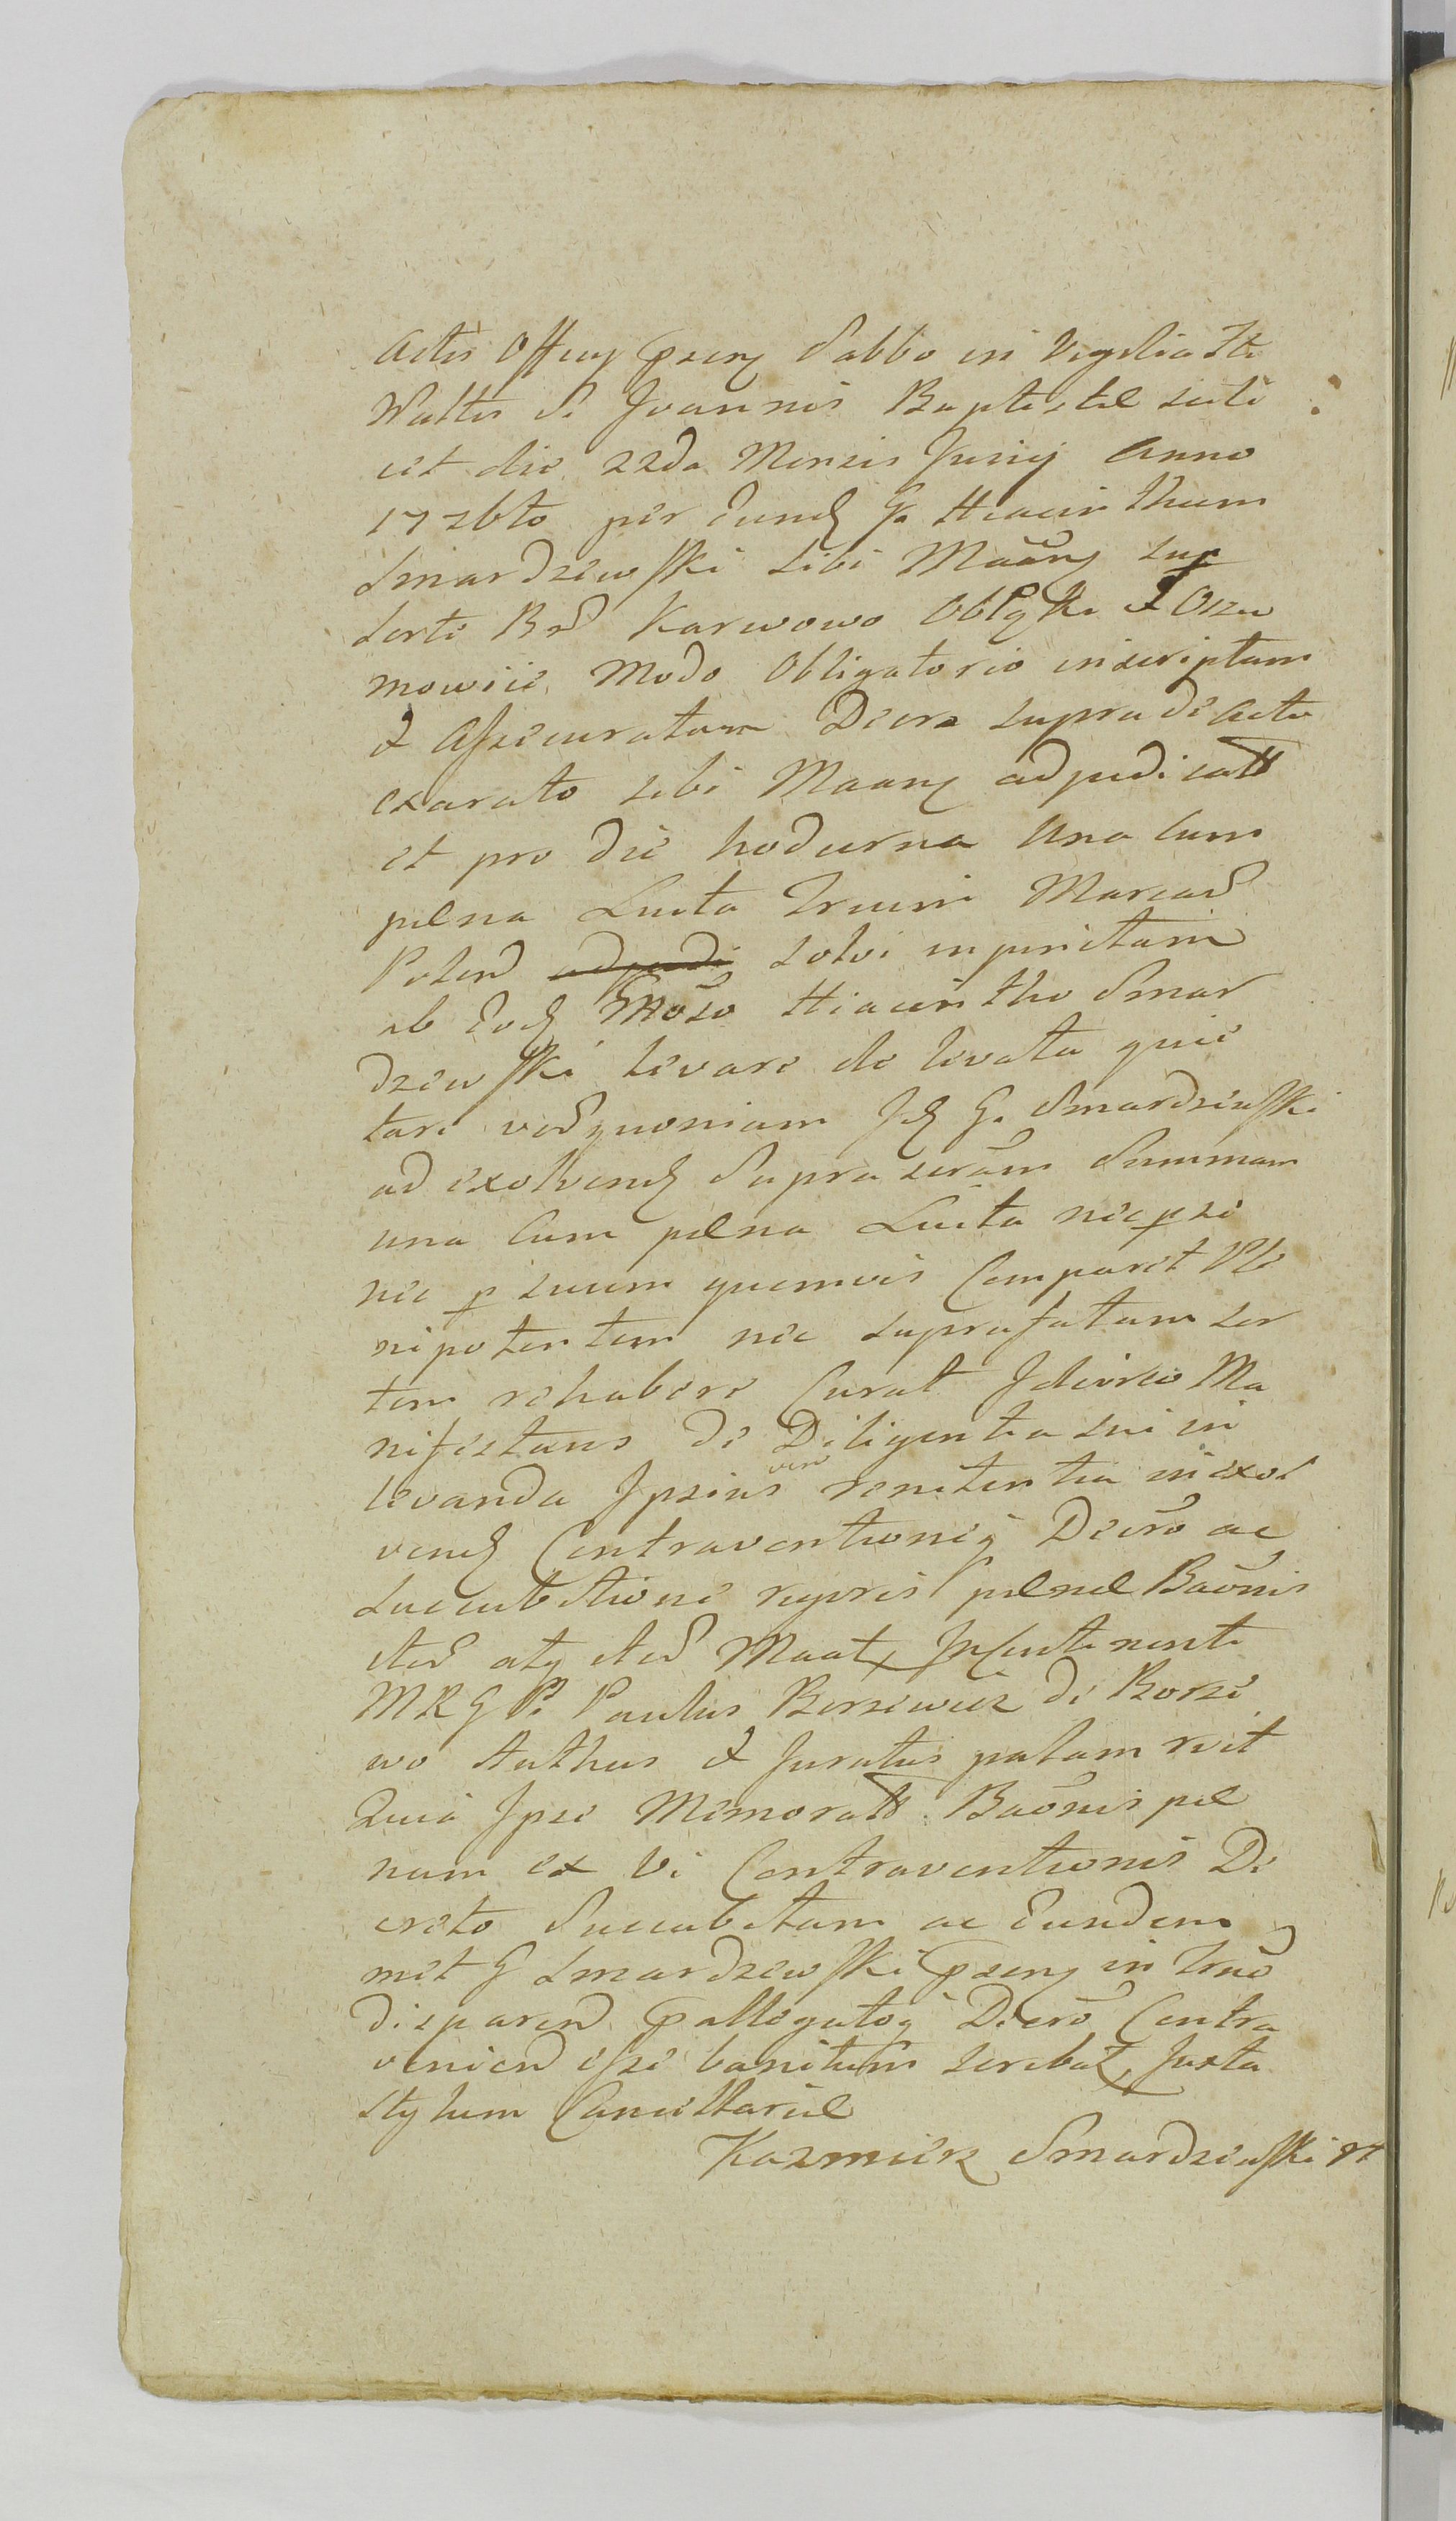 Actis Officy Gseny Sabbo in Vigilia Sti
Waltis S. Joannis Baptistæ scili
cet die 22da Mensis Junij Anno
1726to per Eund G. Hiacinthum
Smardzewski sibi Maany sup
Sorte Br Karwowo Obłyki & Oszu
mowiie Modo Obligatorio inscriptam
& Assecuratam Decro supra de Actu
exarato sibi Maany adjudicatt
et pro die hodierna Una Cum
pæna Lucta Trium Marcar
Polend adjudi Solvi inpinctam
ab Eod Gnoso Hiacintho Smar
dzewski levare de levata quie
tare ver quoniam Id G. Smardziewski
ad exolvend Supra scram Summam
una Cum pæna Lucta nec p se
nec p suum quemvis Comparet Ple
nipotentem nec suprafatam sor
tem rehabere Curat Idcirco Ma
nifestans de Diligentia sui in
levanda Ipsius vero renitentia in exol
vend Contraventioneq Decro ac
Succubitione rupris pænæ Baonis
sted atq sted Maat Incontinenti
MRG P. Paulus Borzewicz de Borze
wo Authus & Juratus palam rcit
Quia Ipse Memoratt Baonis pæ
nam ex Vi Contraventionis De
creto Succubitam ac Eundem
met G Smardzewski Gseny in Trno
disparend Gallegatoq Decro Contra
venien esse banitum scribat Juxta
stylum Cancellariæ
Kazmierz Smardziewski